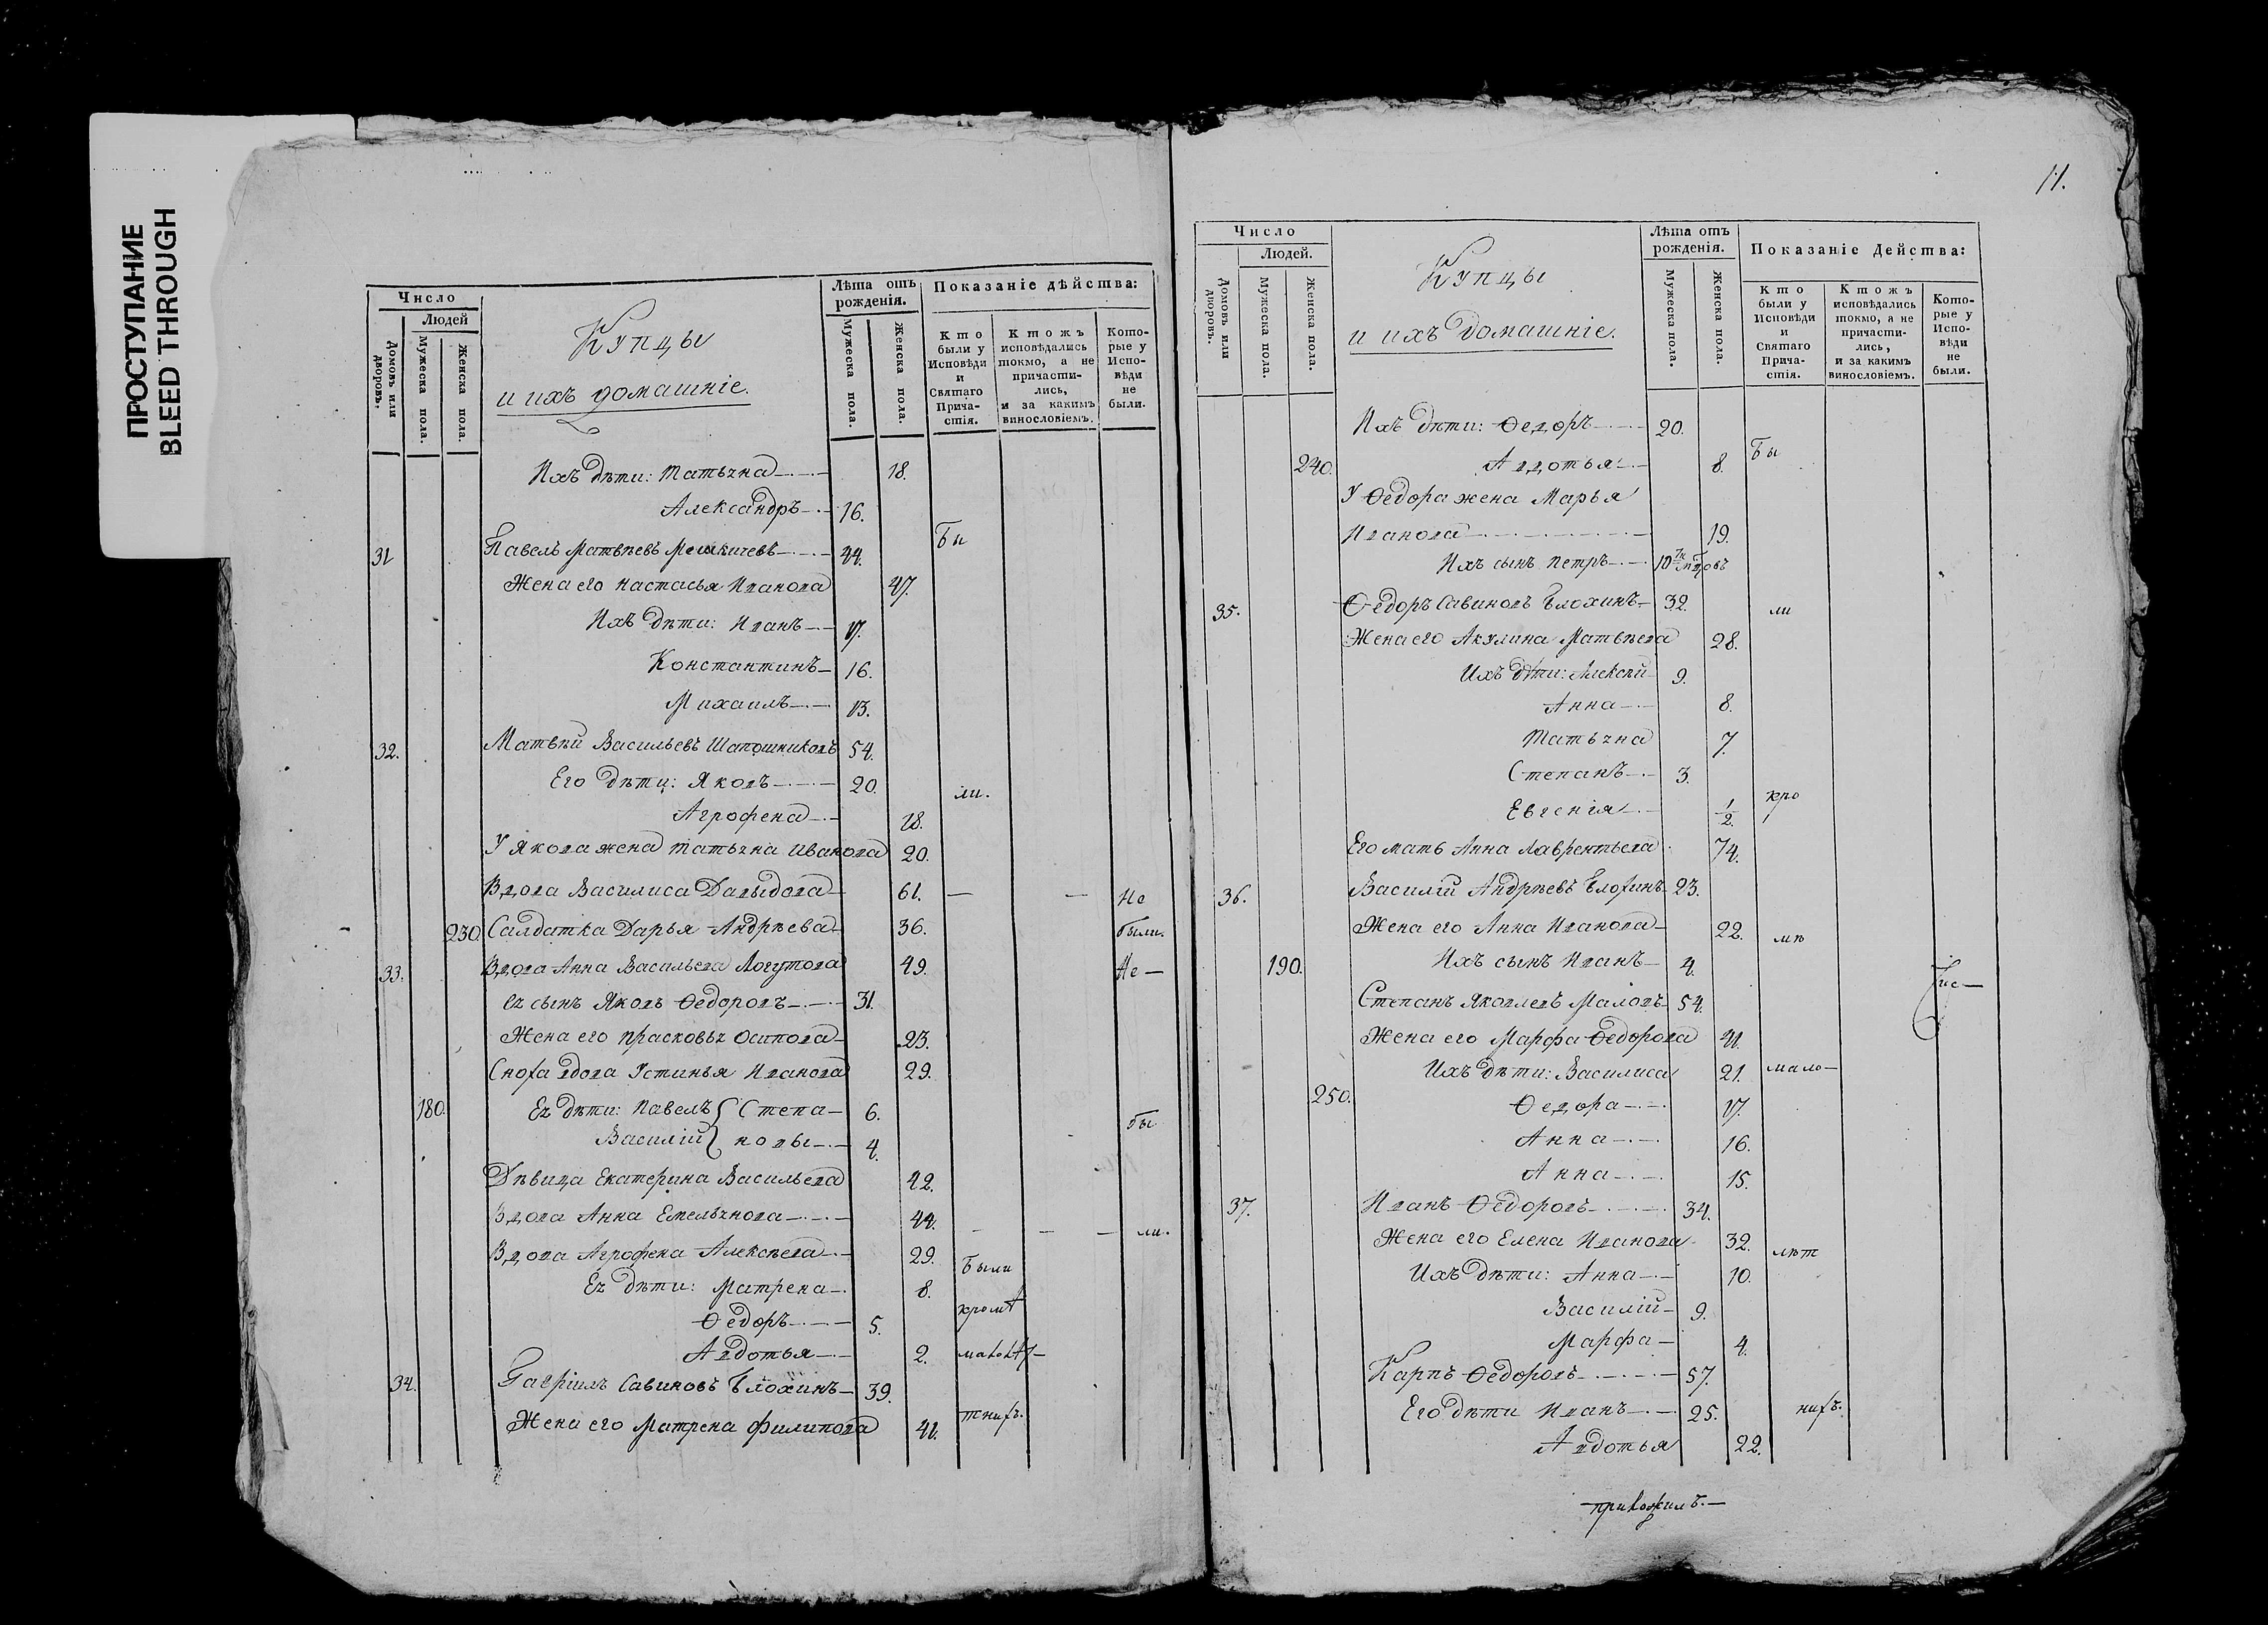 ПРОСТУПАНИЕ
BLEED THROUGH
Число
Людей
Домовъ или дворовъ.
Мужеска пола.
Женска пола.
Купцы
и ихъ домашніе.
Лѣта отъ рожденія.
Мужеска пола.
Женска пола.
Показаніе дѣйства:
Кто были у Исповѣди и Святаго Прича-стія.
Ктожъ исповѣдались токмо, а не причасти-лись, и за какимъ винословіемъ.
Кото-рые у Испо-вѣди не были.
Ихъ дѣти: Татьяна 18.
Александръ 16.
31 Павелъ Матвѣевъ 44. Бы
Жена его Настасья Иванова 47.
Ихъ дѣти: Иванъ 17.
Константинъ 16.
Михаилъ 13.
32. Матвѣй Васильевъ Шапошниковъ 54.
Его дѣти: Яковъ 20. ли.
Агрофена 18.
У Якова жена Татьяна Иванова 20.
Вдова Василиса Давыдова 61. — — Не
230. Салдатка Дарья Андрѣева 36. были.
33. Вдова Анна Васильева Логутова 49. Не —
Ея сынъ Яковъ Федоровъ 31.
Жена его Прасковья Осипова 23.
Сноха вдова Устинья Иванова 29.
180. Ея дѣти: Павелъ } Степа- 6. бы
Василій } новы 4.
Дѣвица Екатерина Васильева 42.
Вдова Анна Емельянова 44. — — — ли.
Вдова Агрофена Алексѣева 29. Были
Ея дѣти: Матрена 8.
Ѳедоръ 5. кромѣ
Авдотья 2. малолѣ-
34. Гавріилъ Савиновъ Блохинъ 39.
Жена его Матрена Филипова 41. тнихъ.
11.
Число
Людей.
Домовъ или дворовъ.
Мужеска пола.
Женска пола.
Купцы
и ихъ домашніе.
Лѣта отъ рожденія.
Мужеска пола.
Женска пола.
Показаніе Действа:
Кто были у Исповѣди и Святаго Прича-стія.
Ктожъ исповѣдались токмо, а не причасти-лись, и за какимъ винословіемъ.
Кото-рые у Испо-вѣди не были.
Ихъ дѣти: Ѳедоръ 20.
240. Авдотья 8. Бы
У Ѳедора жена Марья
Иванова 19.
Ихъ сынъ Петръ 10
35. Ѳедоръ Савиновъ Блохинъ 32. ли
Жена его Акулина Матвѣева 28.
Ихъ дѣти: Алексѣй 9.
Анна 8.
Татьяна 7.
Степанъ 3.
Евгенія 1/2. кро
Его мать Анна Лаврентьева 74.
36. Василій Андрѣевъ Блохинъ 23.
Жена его Анна Иванова 22. мѣ
190. Ихъ сынъ Иванъ 4.
Степанъ Яковлевъ 54.
Жена его Марфа Ѳедорова 41.
Ихъ дѣти: Василиса 21. мало-
250. Ѳедора 17.
Анна 16.
Анна 15.
37. Иванъ Ѳедоровъ 34.
Жена его Елена Иванова 32. лѣт
Ихъ дѣти: Анна 10.
Василій 9.
Марфа 4.
Карпъ Ѳедоровъ 57.
Его дѣти Иванъ 25. нихъ.
Авдотья 22.